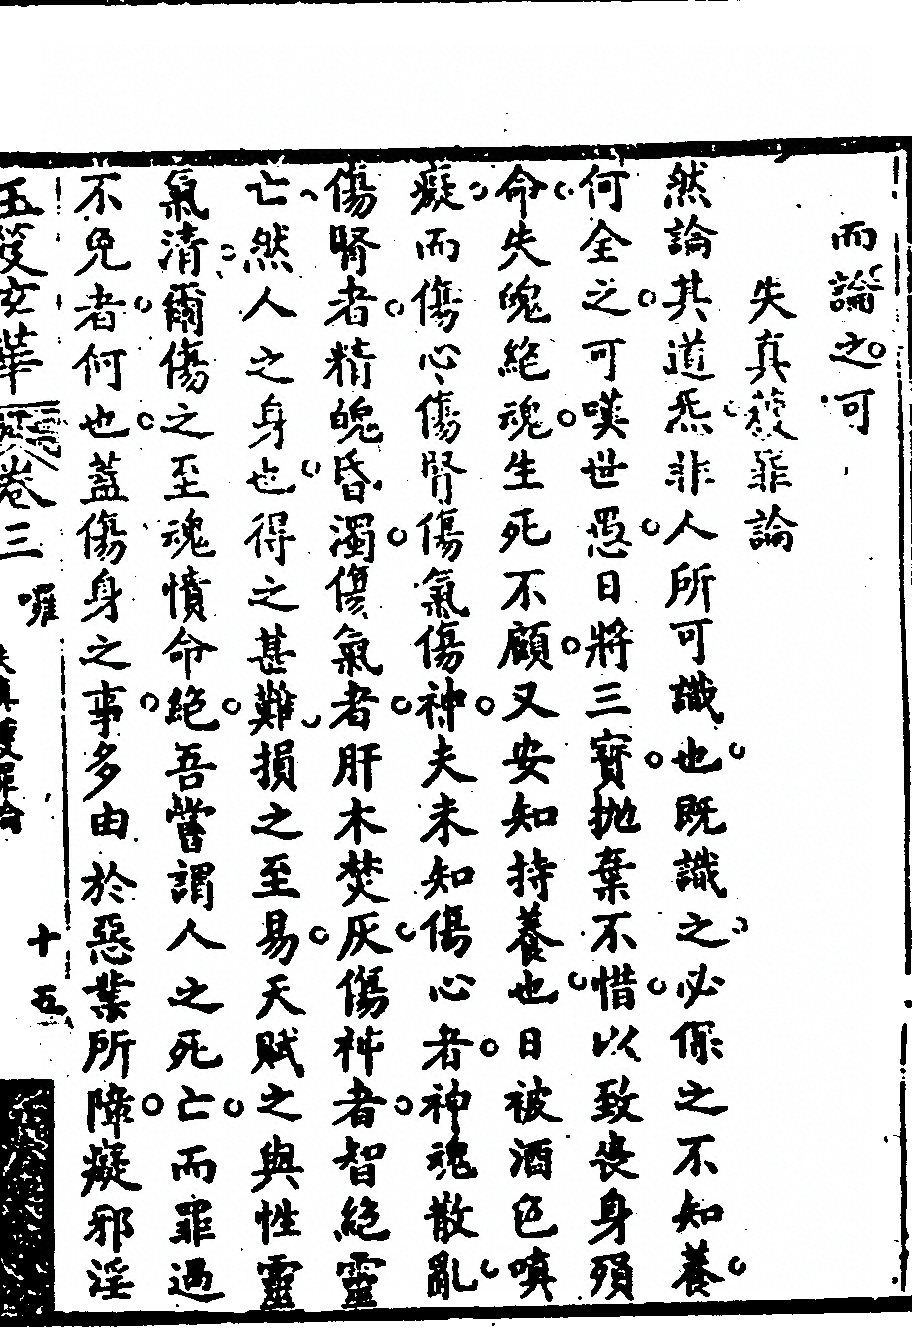 而論之可
失真獲罪論
然論其道炁非人所可識也既識之必保之不知養
何全之可嘆世愚日將三寶拋棄不惜以致喪身殞
命失魄絕魂生死不顧又安知持養也日被酒色嗔
癡而傷心傷腎傷氣傷神夫未知傷心者神魂散亂
傷腎者精魄昏濁傷氣者肝木焚灰傷神者智絕靈
亡然人之身也得之甚難損之至易天賦之與性靈
氣清爾傷之至魂憤命絕吾嘗謂人之死亡而罪過
不免者何也蓋傷身之事多由於惡業所障癡邪淫
玉笈玄華 卷三 囉 失真獲罪論 十五